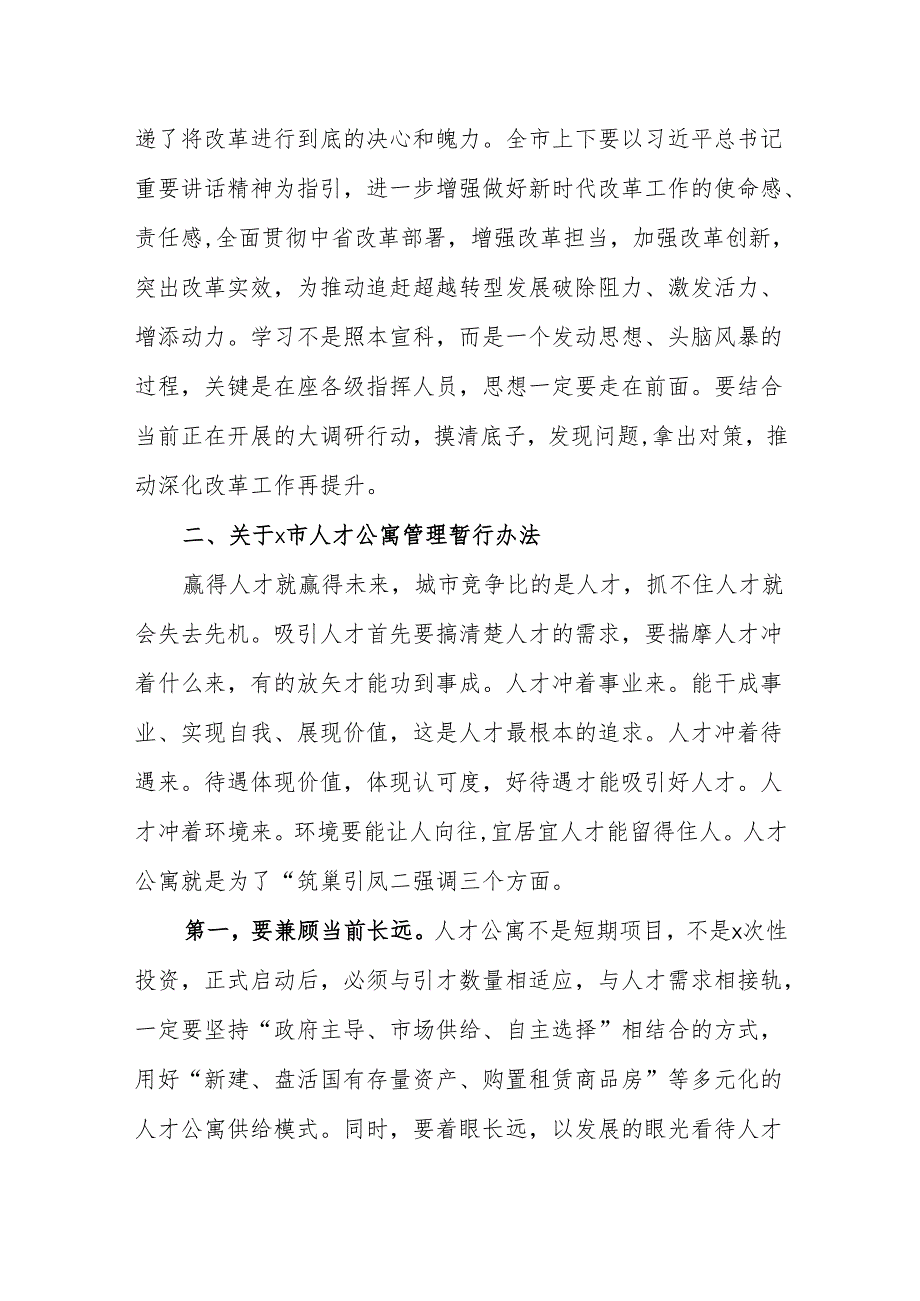 递了将改革进行到底的决心和魄力。全市上下要以习近平总书记
重要讲话精神为指引，进一步增强做好新时代改革工作的使命感、
责任感,全面贯彻中省改革部署，增强改革担当，加强改革创新，
突出改革实效，为推动追赶超越转型发展破除阻力、激发活力、
增添动力。学习不是照本宣科，而是一个发动思想、头脑风暴的
过程，关键是在座各级指挥人员，思想一定要走在前面。要结合
当前正在开展的大调研行动，摸清底子，发现问题,拿出对策，推
动深化改革工作再提升。
二、关于x市人才公寓管理暂行办法
赢得人才就赢得未来，城市竞争比的是人才，抓不住人才就
会失去先机。吸引人才首先要搞清楚人才的需求，要揣摩人才冲
着什么来，有的放矢才能功到事成。人才冲着事业来。能干成事
业、实现自我、展现价值，这是人才最根本的追求。人才冲着待
遇来。待遇体现价值，体现认可度，好待遇才能吸引好人才。人
才冲着环境来。环境要能让人向往,宜居宜人才能留得住人。人才
公寓就是为了“筑巢引凤二强调三个方面。
第一，要兼顾当前长远。人才公寓不是短期项目，不是x次性
投资，正式启动后，必须与引才数量相适应，与人才需求相接轨，
一定要坚持“政府主导、市场供给、自主选择”相结合的方式，
用好“新建、盘活国有存量资产、购置租赁商品房”等多元化的
人才公寓供给模式。同时，要着眼长远，以发展的眼光看待人才